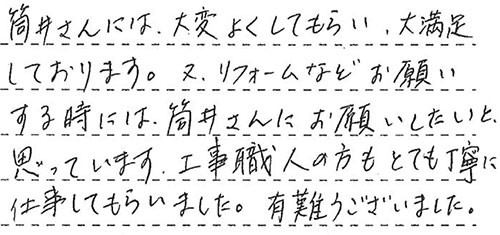 筒井さんには、大変よくしてもらい、大満足
しております。又、リフォームなどお願い
する時には、筒井さんにお願いしたいと、
思っています。工事職人の方もとても丁寧に
仕事してもらいました。有難うございました。